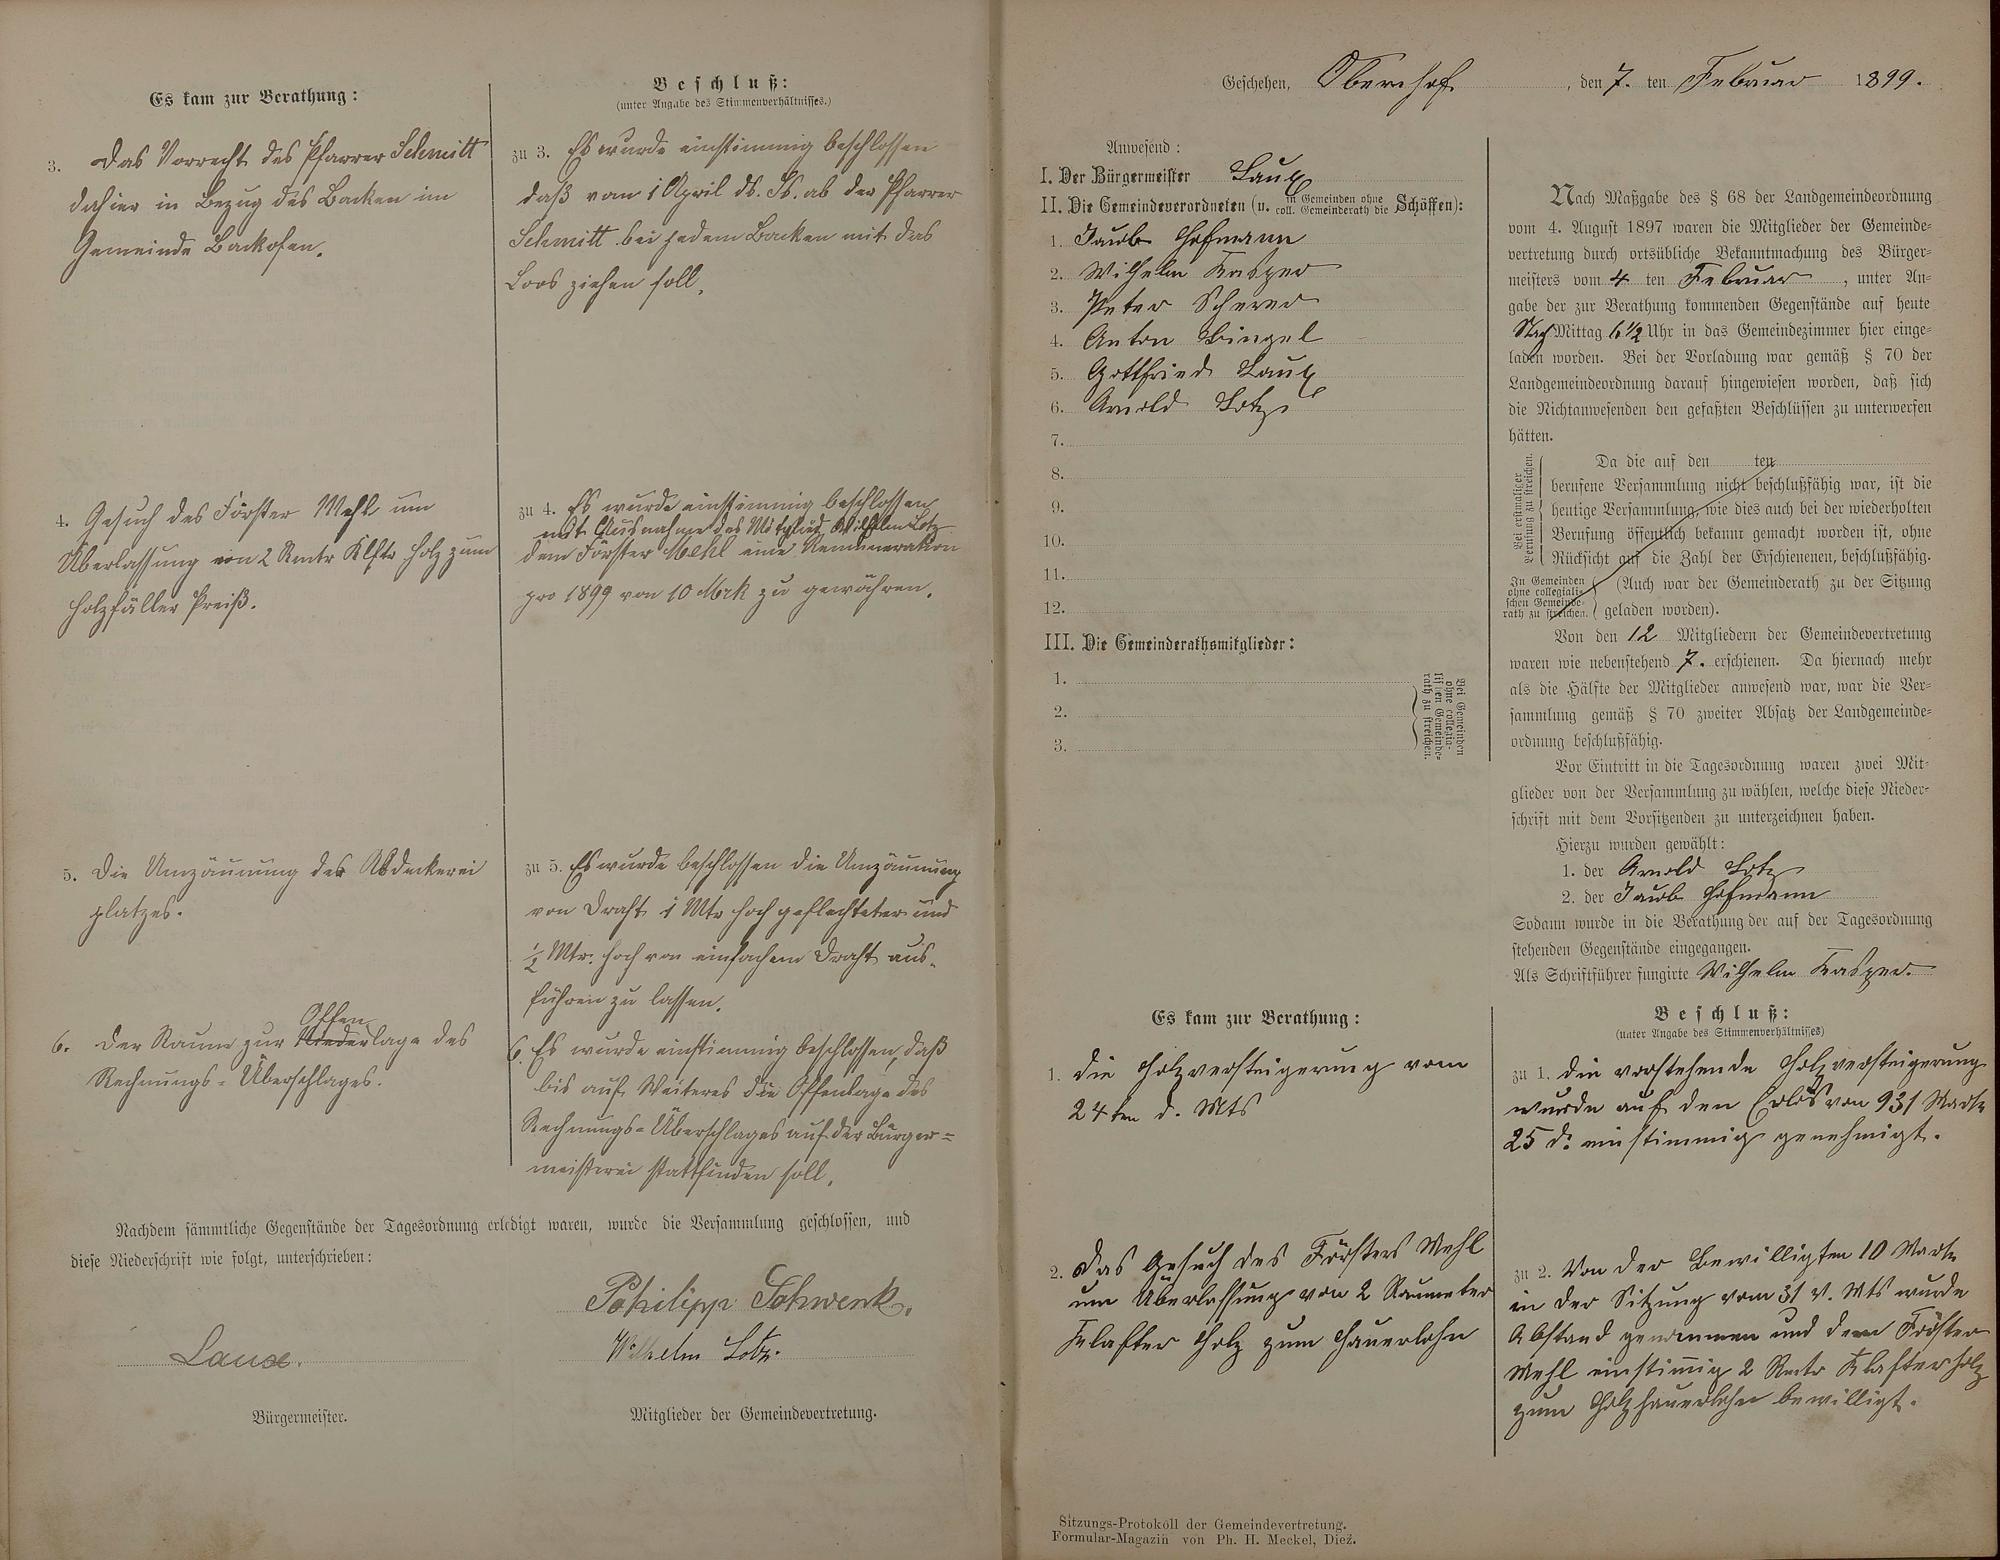 Es kam zur Berathung:
3. Das Vorrecht des Pfarrer Schmitt
dahier in Bezug des Backen im
Gemeinde Backofen.
4. Gesuch des Förster Mehl um
Überlassung von 2 Rmtr Klftr Holz zum
Holzfäller Preiß.
5. Die Umzäunung des Abdeckerei
platzes.
Offen
6. Der Raum zur Niederlage des
Rechnungs-Überschlages.
Beschluß:
(unter Angabe des Stimmenverhältnisses.)
zu 3. Es wurde einstimmig beschlossen
daß vom 1 April ds. Js. ab der Pfarrer
Schmitt bei jedem Backen mit das
Loos ziehen soll.
zu 4. Es wurde einstimmig beschlossen
mit Ausnahme des Mitglied Wilhelm Lotz
dem Förster Mehl eine Remuneration
pro 1899 von 10 Mrk zu gewähren.
zu 5. Es wurde beschlossen die Umzäunung
von Draht 1 Mtr hoch geflechteter und
1/2 Mtr. hoch von einfachem Draht aus-
führen zu lassen.
6. Es wurde einstimmig beschlossen, daß
bis auf Weiteres die Offenlage des
Rechnungs-Überschlages auf der Bürger=
meisterei stattfinden soll.
Nachdem sämmtliche Gegenstände der Tagesordnung erledigt waren, wurde die Versammlung geschlossen, und
diese Niederschrift wie folgt, unterschrieben:
Philipp Schwenk.
Laux.
Wilhelm Lotz.
Bürgermeister.
Mitglieder der Gemeindevertretung.
Geschehen, Obernhof, den 7. ten Februar 1899.
Anwesend:
I. Der Bürgermeister Laux
II. Die Gemeindeverordneten (u. in Gemeinden ohne coll. Gemeinderath die Schöffen):
1. Jacob Hofmann
2. Wilhelm Kasper
3. Peter Scherer
4. Anton Bingel
5. Gottfried Laux
6. Arnold Lotz
7.
8.
9.
10.
11.
12.
III. Die Gemeinderathsmitglieder:
1.
2.
3.
Bei Gemeinden
ohne collegia-
lischen Gemeinde-
rath zu streichen.
Nach Maßgabe des § 68 der Landgemeindeordnung
vom 4. August 1897 waren die Mitglieder der Gemeinde-
vertretung durch ortsübliche Bekanntmachung des Bürger-
meisters vom 4 ten Februar, unter An-
gabe der zur Berathung kommenden Gegenstände auf heute
Nach Mittag 6 1/2 Uhr in das Gemeindezimmer hier einge-
laden worden. Bei der Vorladung war gemäß § 70 der
Landgemeindeordnung darauf hingewiesen worden, daß sich
die Nichtanwesenden den gefaßten Beschlüssen zu unterwerfen
hätten.
Bei erstmaliger
Berufung zu streichen.
Da die auf den ten
berufene Versammlung nicht beschlußfähig war, ist die
heutige Versammlung, wie dies auch bei der wiederholten
Berufung öffentlich bekannt gemacht worden ist, ohne
Rücksicht auf die Zahl der Erschienenen, beschlußfähig.
In Gemeinden
ohne collegiali-
schen Gemeinde-
rath zu streichen.
(Auch war der Gemeinderath zu der Sitzung
geladen worden).
Von den 12 Mitgliedern der Gemeindevertretung
waren wie nebenstehend 7. erschienen. Da hiernach mehr
als die Hälfte der Mitglieder anwesend war, war die Ver-
sammlung gemäß § 70 zweiter Absatz der Landgemeinde-
ordnung beschlußfähig.
Vor Eintritt in die Tagesordnung waren zwei Mit-
glieder von der Versammlung zu wählen, welche diese Nieder-
schrift mit dem Vorsitzenden zu unterzeichnen haben.
Hierzu wurden gewählt:
1. der Arnold Lotz
2. der Jacob Hofmann
Sodann wurde in die Berathung der auf der Tagesordnung
stehenden Gegenstände eingegangen.
Als Schriftführer fungirte Wilhelm Kasper.
Es kam zur Berathung:
1. Die Holzversteigerung vom
24ten d. Mts
2. Das Gesuch des Försters Mehl
um Überlassung von 2 Raumeter
Klafter Holz zum Hauerlohn
Beschluß:
(unter Angabe des Stimmenverhältnisses)
zu 1. Die vorstehende Holzversteigerung
wurde auf den Erlös von 931 Mark
25 d. einstimmig genehmigt.
zu 2. Von der Bewilligten 10 Mark
in der Sitzung vom 31 v. Mts wurde
Abstand genommen und dem Förster
Mehl einstimig 2 Rmtr Klafterholz
zum Holzhauerlohn bewilligt.
Sitzungs-Protokoll der Gemeindevertretung.
Formular-Magazin von Ph. H. Meckel, Diez.